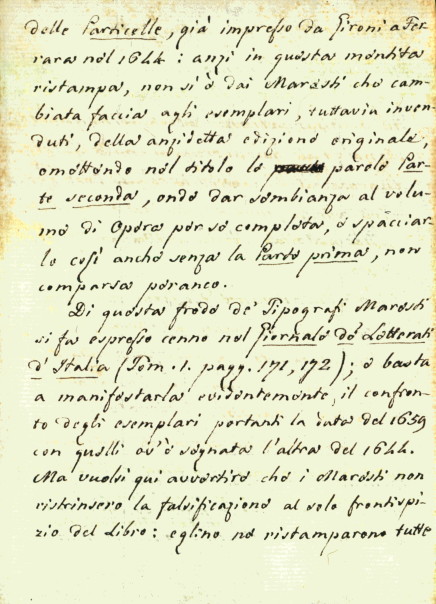 delle Particelle, già impresso da Gironi a Fer
rara nel 1644: anzi in questa mentita
ristampa, non si è dai Maresti che cam
biata faccia agli esemplari, tuttavia inven
duti, della anzidetta edizione originale,
omettendo nel titolo le parole Par-
te seconda, onde dar sembianza al volu-
me di Opera per se completa, e spacciar-
lo così anche senza la Parte prima, non
comparsa peranco.
Di questa frode de' Tipografi Maresti
si fa espresso cenno nel Giornale de' Letterati
d'Italia (Tom. 1. pagg. 171, 172); e basta
a manifestarla evidentemente, il confron-
to degli esemplari portanti la data del 1659
con quelli ov'è segnata l'altra del 1644.
Ma vuolsi qui avvertire che i Maresti non
ristrinsero la falsificazione al solo frontispi-
zio del Libro: eglino ne ristamparono tutte